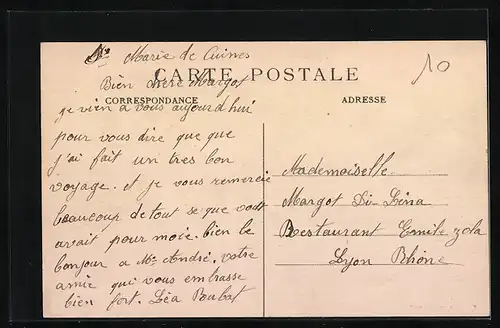 Ste Marie de Cuines
CARTE POSTALE
Bien chère Margot
CORRESPONDANCE
ADRESSE
10
je vien a vous aujourd'hui
pour vous dire que que
j'ai fait un tres bon
voyage. et je vous remercie
beaucoup de tout se que vous
avait pour moie. bien le
bonjour a Mr André. votre
amie qui vous embrasse
bien fort. Léa Boubat
Mademoiselle
Margot Di-Léna
Restaurant Emile zola
Lyon Rhône